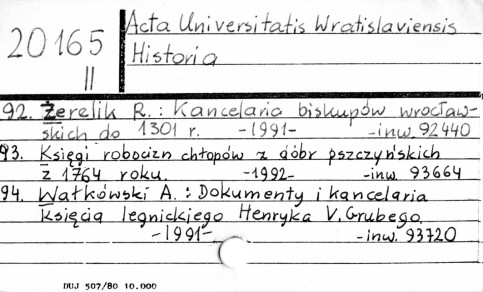 20165
II
Acta Universitatis Wratislaviensis
Historia
92. Żerelik R.: Kancelaria biskupów wrocław-
skich do 1301 r. -1991- -inw. 92440
93. Księgi robocizn chłopów z dóbr pszczyńskich
z 1764 roku. -1992- -inw. 93664
94. Wałkówski A.: Dokumenty i kancelaria
Księcia legnickiego Henryka V. Grubego.
-1991- -inw. 93720
DUJ 507/80 10.000